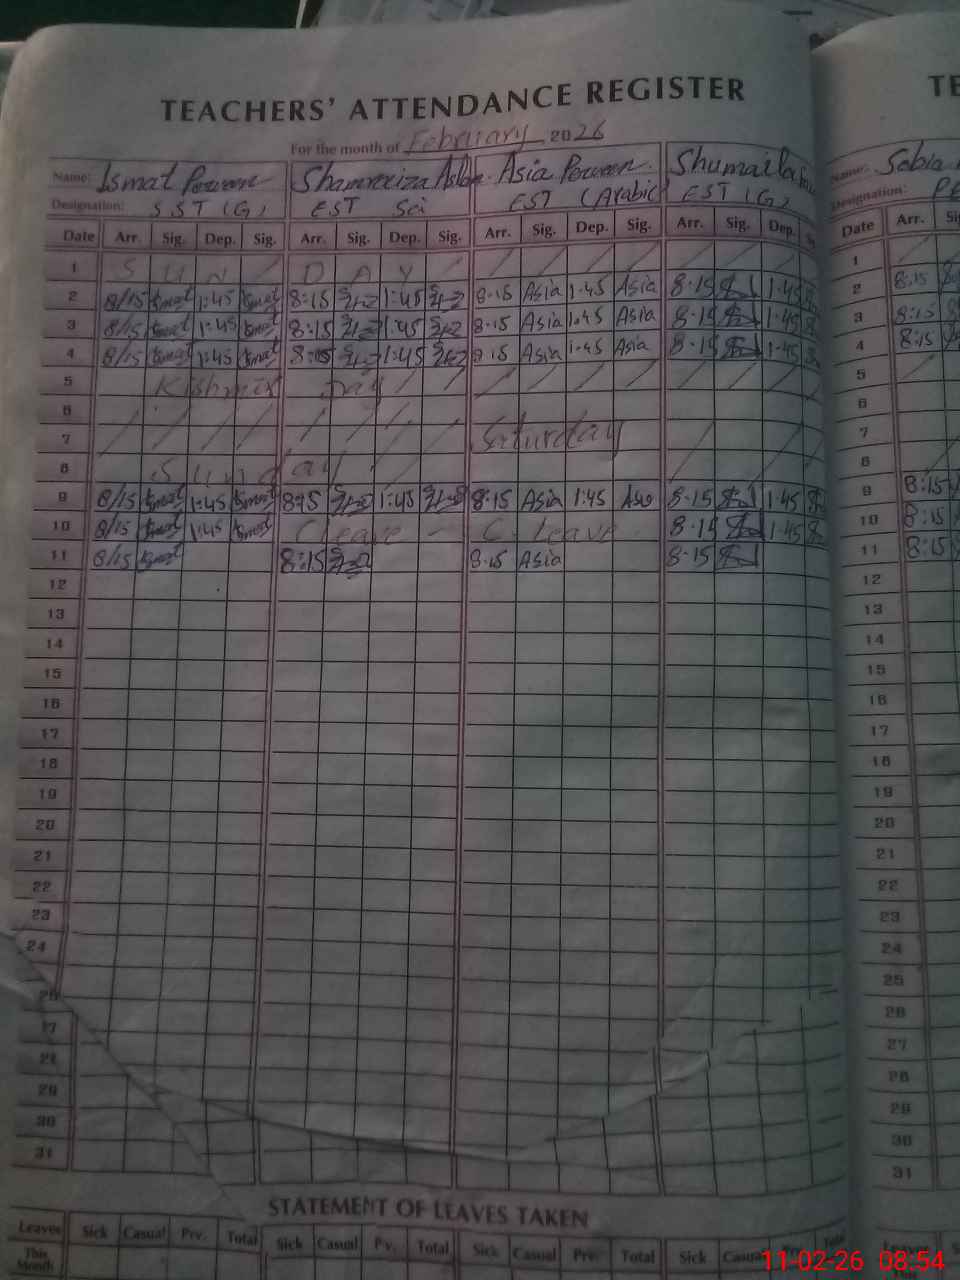 TEACHERS' ATTENDANCE REGISTER
For the month of February 2026
Name: Ismat Perveen Shamreeiza Aslam Asia Perveen Shumaila Name: Sobia
Designation: SST (G) EST Sci EST (Arabic) EST (G) Designation:
Date Arr. Sig. Dep. Sig. Arr. Sig. Dep. Sig. Arr. Sig. Dep. Sig. Arr. Sig. Dep. Date Arr.
1 S U N D A Y 1
2 8/15 Ismat 1:45 Ismat 8:15 1:45 8:15 Asia 1:45 Asia 8:15 1:45 2 8:15
3 8/15 Ismat 1:45 Ismat 8:15 1:45 8:15 Asia 1:45 Asia 8:15 1:45 3 8:15
4 8/15 Ismat 1:45 Ismat 8:15 1:45 8:15 Asia 1:45 Asia 8:15 1:45 4 8:15
5 Kashmir Day 5
6 6
7 Saturday 7
8 Sunday 8
9 8/15 Ismat 1:45 Ismat 8:15 1:45 8:15 Asia 1:45 8:15 1:45 9 8:15
10 8/15 Ismat 1:45 Ismat C leave C. Leave 8:15 1:45 10 8:15
11 8/15 Ismat 8:15 8:15 Asia 8:15 11 8:15
12 12
13 13
14 14
15 15
16 16
17 17
18 18
19 19
20 20
21 21
22 22
23 23
24 24
25
26 26
27 27
28 28
29 29
30 30
31 31
STATEMENT OF LEAVES TAKEN
Leaves Sick Casual Prv. Total Sick Casual Pv. Total Sick Casual Prv. Total Sick Casual Prv. Leaves
This Month
11-02-26 08:54